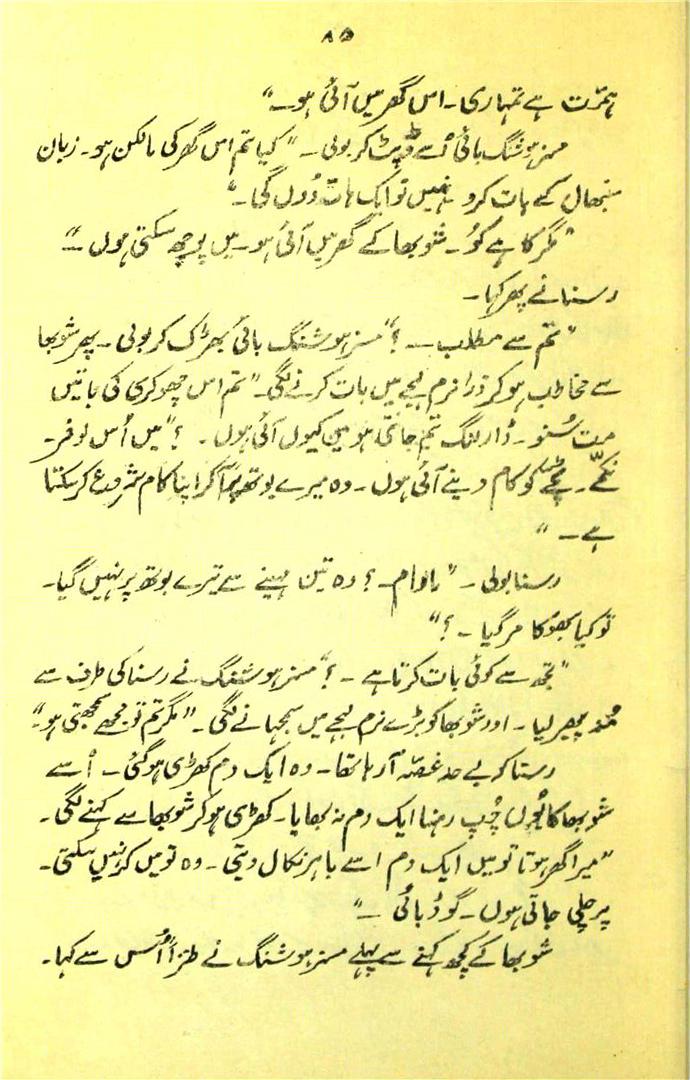 ۸۵
ہمّت ہے تمہاری۔ اس گھر میں آئی ہو۔"
مسز ہوشنگ بائی اُسے ڈپٹ کر بولی۔ "کیا تم اس گھر کی مالکن ہو۔ زبان
سنبھال کے بات کرو نہیں تو ایک ہات دُوں گی۔"
"مگر کاہے کوُ۔ شوبھا کے گھر میں آئی ہو۔ میں پوچھ سکتی ہوں۔"
رستنا نے پھر کہا۔
"تم سے مطلب۔ ؟" مسز ہوشنگ بائی بھڑک کر بولی۔ پھر شوبھا
سے مخاطب ہو کر ذرا نرم لہجے میں بات کرنے لگی۔ "تم اس چھوکری کی باتیں
مت سُنو۔ ڈارلنگ تم جانتی ہو میں کیوں آئی ہوں۔ ؟" میں اُس لوفر۔
نکمّے۔ کو کام دینے آئی ہوں۔ وہ میرے بوتھ پر آ کر اپنا کام شروع کر سکتا
ہے۔"
رستنا بولی۔ "مادام۔ ؟ وہ تین مہینے سے تیرے بوتھ پر نہیں گیا۔
تو کیا بھوُکا مر گیا۔ ؟"
"تجھ سے کوئی بات کرتا ہے۔ ؟" مسز ہوشنگ نے رستنا کی طرف سے
مُنہ پھیر لیا۔ اور شوبھا کو بڑے نرم لہجے میں سمجھانے لگی۔ "مگر تم تو مجھے سمجھتی ہو۔"
رستنا کو بے حد غصّہ آ رہا تھا۔ وہ ایک دم کھڑی ہو گئی۔ اُسے
شوبھا کا یُوں چُپ رہنا ایک دم نہ بھایا۔ کھڑی ہو کر شوبھا سے کہنے لگی۔
"میرا گھر ہوتا تو میں ایک دم اسے باہر نکال دیتی۔ وہ تو میں کر نہیں سکتی۔
پر چلی جاتی ہوں۔ گوُڈ بائی۔"
شوبھا کے کچھ کہنے سے پہلے مسز ہوشنگ نے طنزاً اُس سے کہا۔